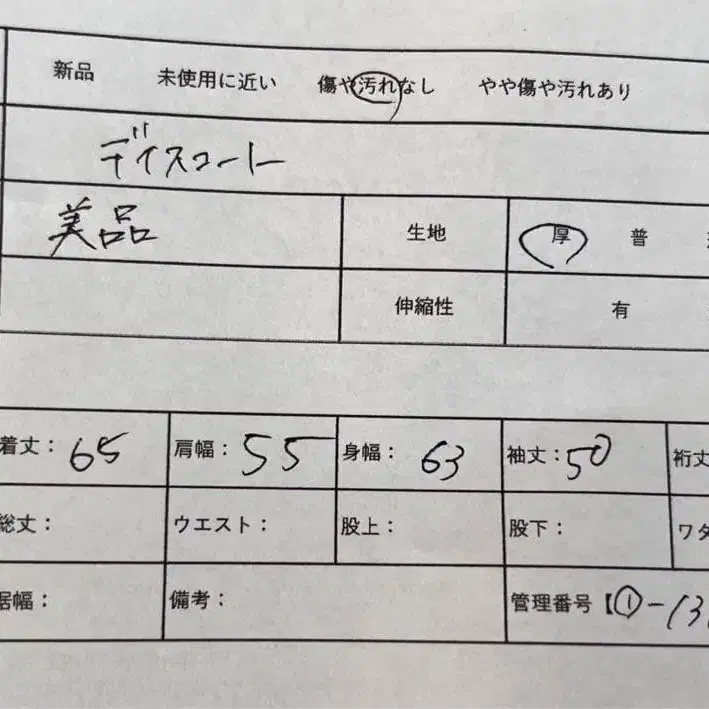 新品 未使用に近い 傷や汚れなし やや傷や汚れあり
ディスコート
美品 生地 厚 普
伸縮性 有
着丈： 65 肩幅： 55 身幅： 63 袖丈： 50 裄丈
総丈： ウエスト： 股上： 股下： ワタ
裾幅： 備考： 管理番号【①-13